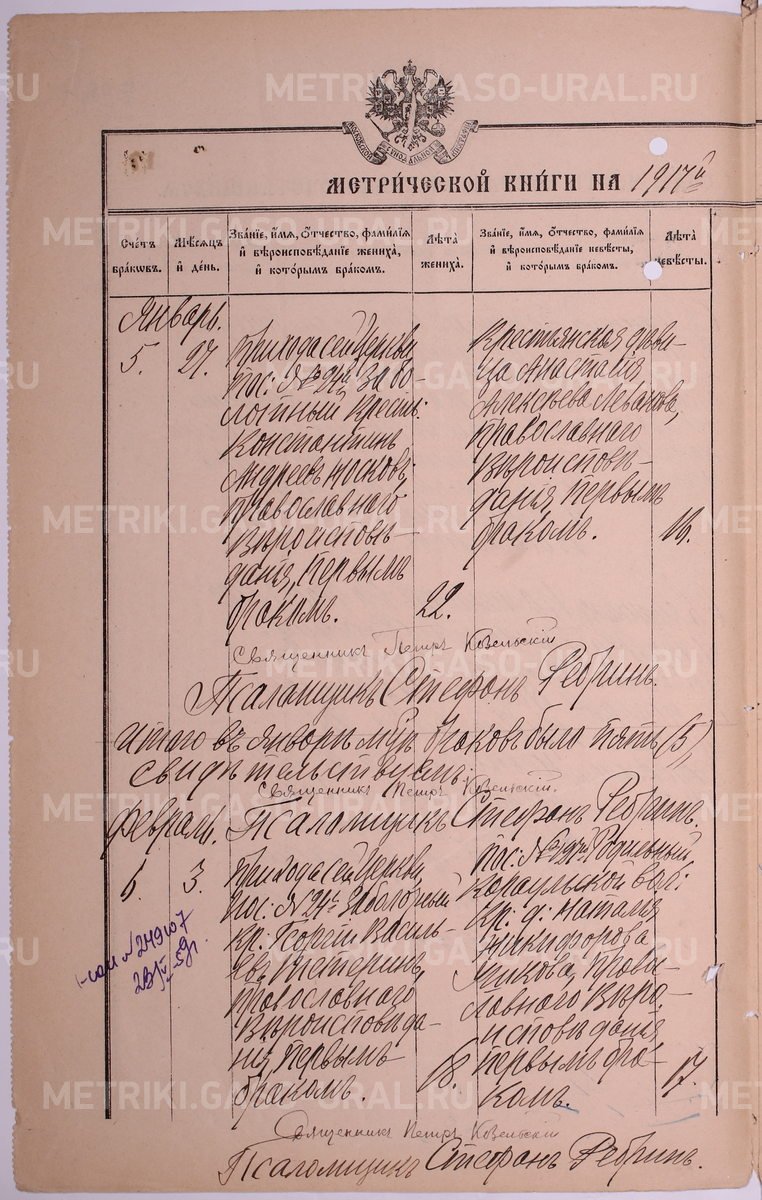 МОСКОВСКОЙ СѴНОДАЛЬНОЙ
МЕТРИ́ЧЕСКОЙ КНИ́ГИ НА 1917й
Сче́тъ бра́ковъ.
Мѣ́сяцъ и҆ де́нь.
Зва́нїе, и҆́мѧ, ѻ҆́тчество, фами́лїѧ
и҆ вѣроисповѣ́данїе жениха̀,
и҆ кото́рымъ бра́комъ.
Лѣ́та
жениха̀.
Зва́нїе, и҆́мѧ, ѻ҆́тчество, фами́лїѧ
и҆ вѣроисповѣ́данїе невѣ́сты,
и҆ кото́рымъ бра́комъ.
Лѣ́та
невѣ́сты.
Январь.
5. 27.
Прихода сей Церкви,
пос: № 24й Забо-
лотный Крест:
Константинъ
Андреевъ Носковъ,
православнаго
вѣроисповѣ-
данія, первымъ
бракомъ.
22.
Крестьянская дѣви-
ца Анастасія
Алексѣева
православнаго
вѣроисповѣ-
данія, первымъ
бракомъ.
Священникъ Петръ Ковельскій
Псаломщикъ Стефанъ Ребринъ.
Итого въ январѣ м-цѣ браковъ было пять (5),
свидѣтельствуемъ:
Священникъ Петръ Ковельскій.
Псаломщикъ Стефанъ Ребринъ.
Февраль.
3.
Прихода сей Церкви,
пос: № 24й Заболотный
кр: Георгій Василь-
евъ
православнаго
вѣроисповѣда-
нія, первымъ
бракомъ.
18.
пос:
вол:
кр: д: Наталія
Никифорова
правос-
лавнаго вѣро-
исповѣданія
первымъ бра-
комъ.
17.
№ 249107
Священникъ Петръ Ковельскій
Псаломщикъ Стефанъ Ребринъ.
METRIKI.GASO-URAL.RU